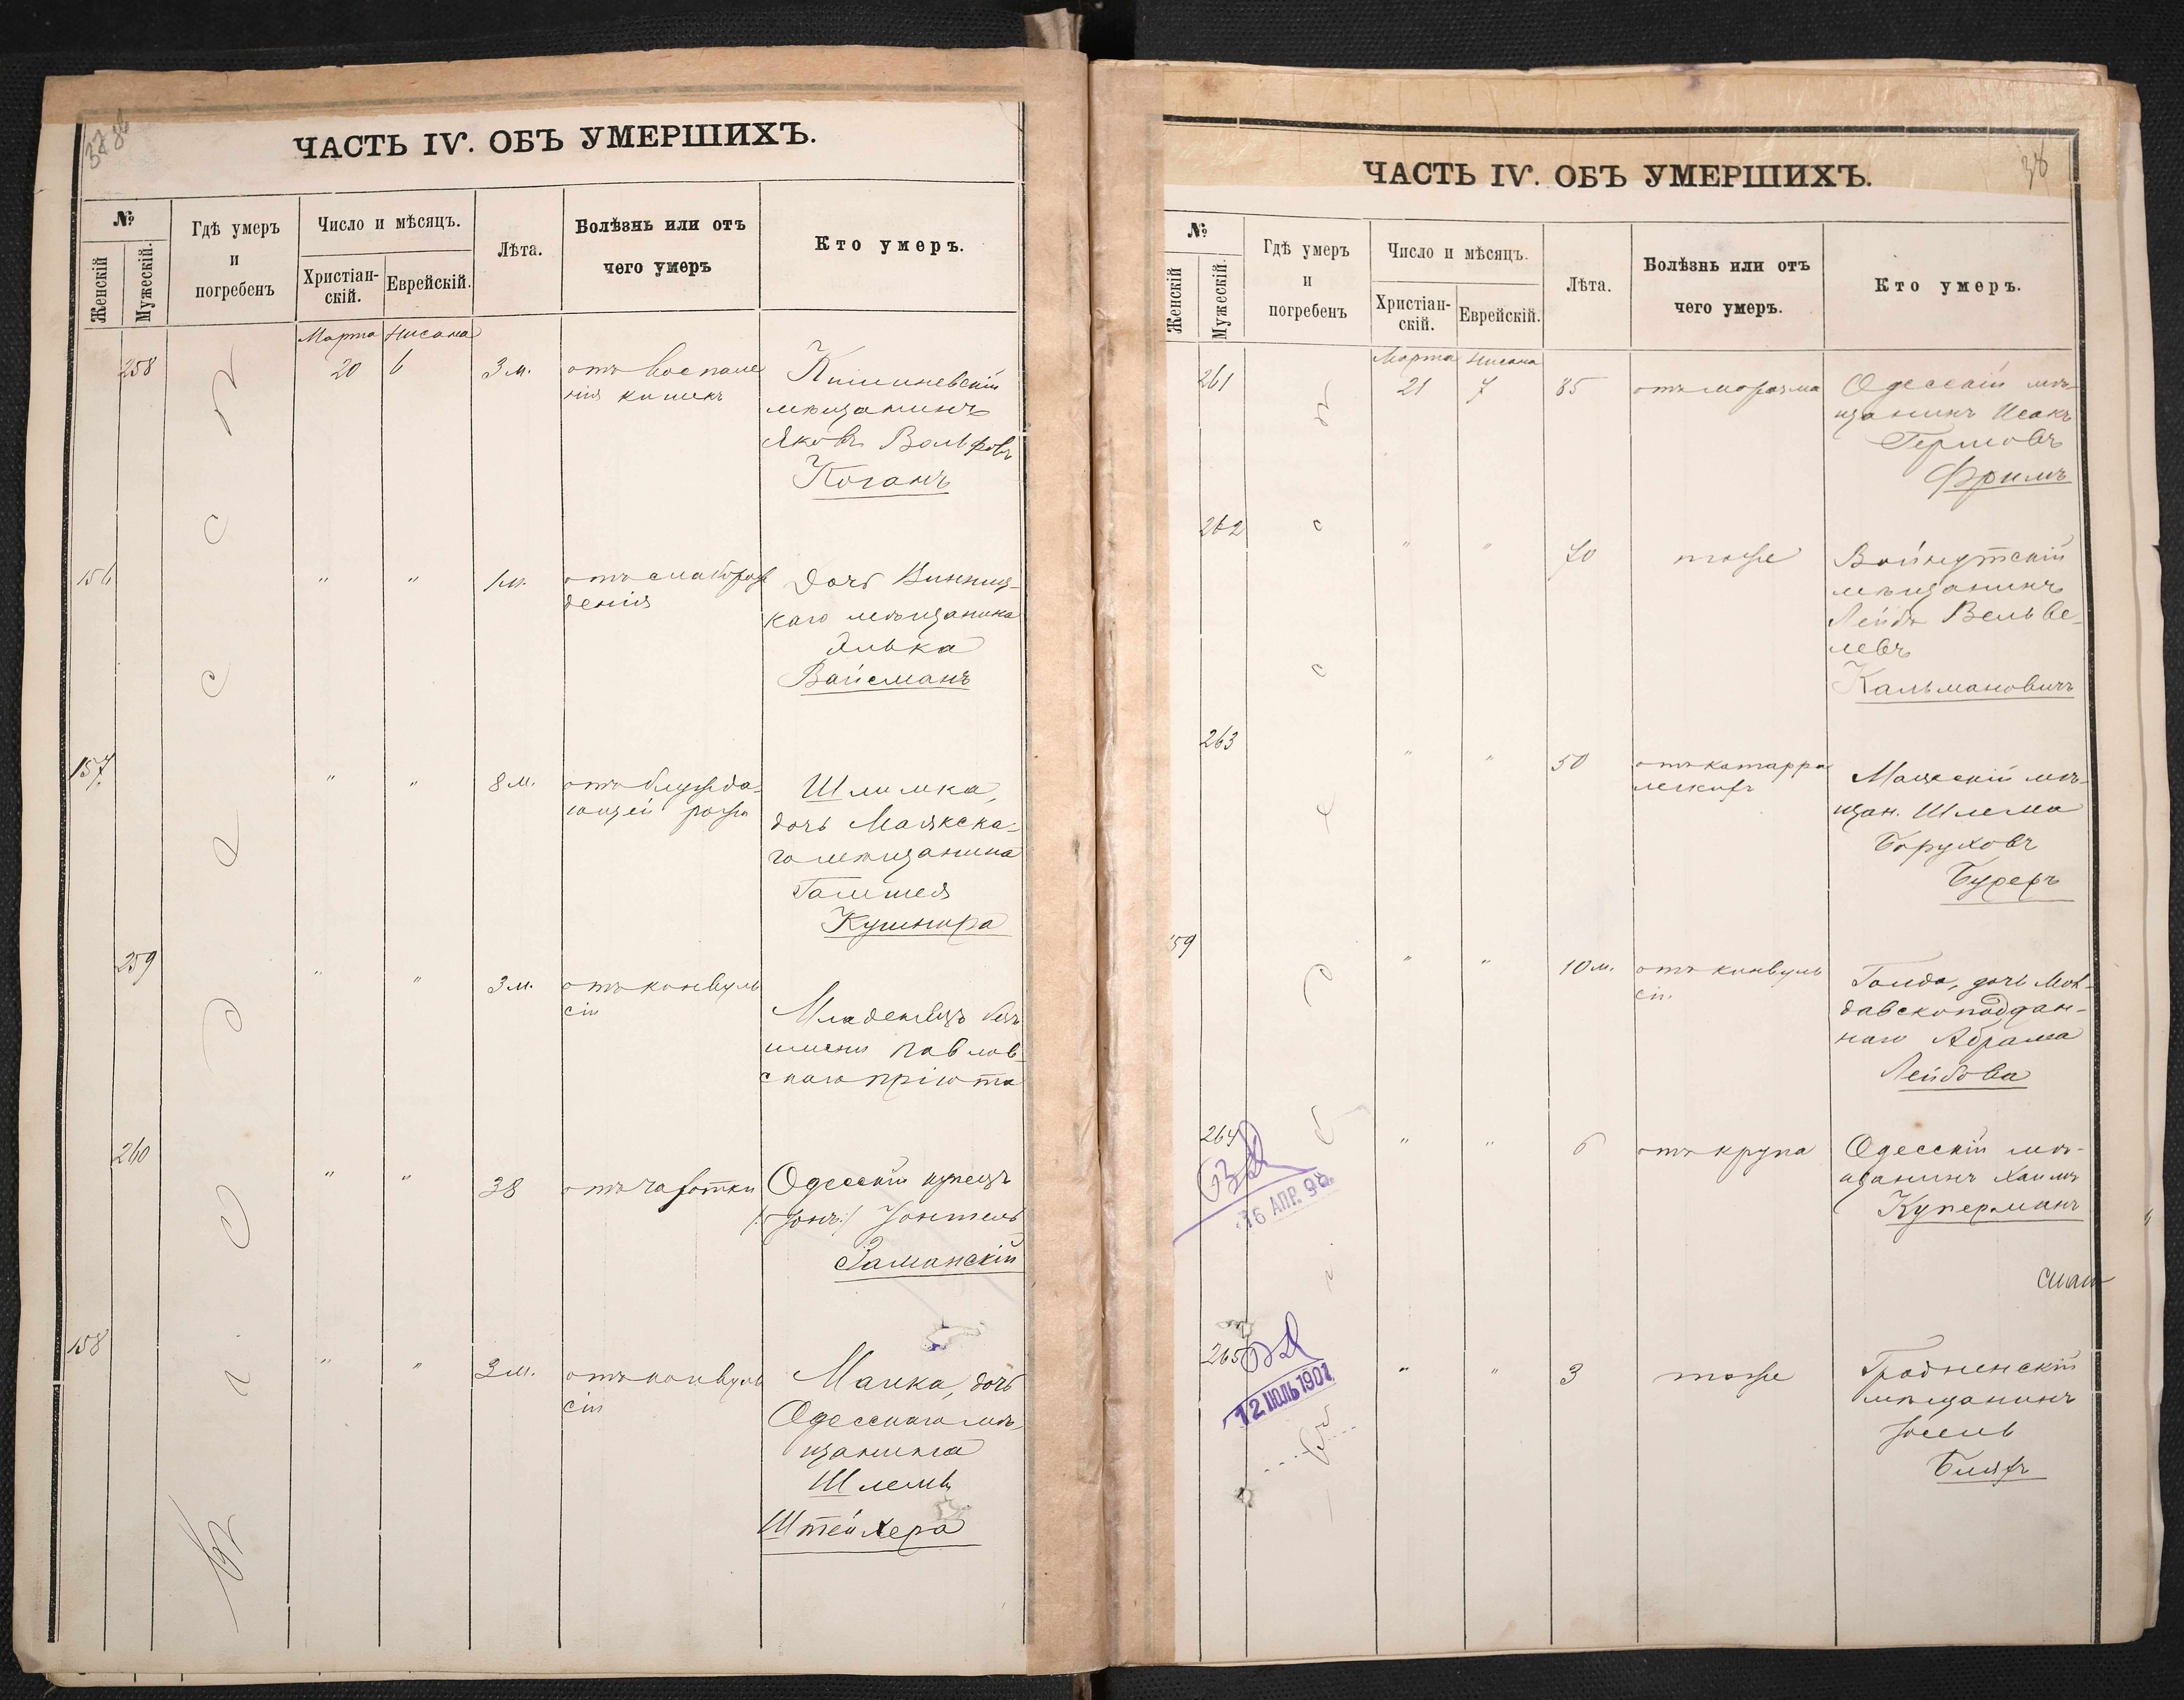 ЧАСТЬ IV. ОБЪ УМЕРШИХЪ.
№
Женскій
Мужескій.
Гдѣ умеръ
и
погребенъ
Число и мѣсяцъ.
Христіан-
скій.
Еврейскій.
Лѣта.
Болѣзнь или отъ
чего умеръ
Кто умеръ.
Марта Нисана
258 20 6 3 м. отъ воспале
нія кишекъ
Кишиневскій
мѣщанинъ
Яковъ Вольфовъ
Коганъ
156 " " 1 м. отъ слаборож
денія
Дочь Винниц-
каго мѣщанина
Элька
Вайсманъ
157 " " 8 м. отъ блужда-
ющей рожи
Шлимка,
дочь Маякска-
го мѣщанина
Кушнира
259 " " 3 м. отъ конвуль
сіи
Младенецъ безъ
имени Павлов-
скаго пріюта
260 " " 38 отъ чахотки
Одесскій купецъ
Заманскій
158 " " 3 м. отъ конвуль
сіи
Малка, дочь
Одесскаго мѣ-
щанина
Шлемы
Штейхера
В г. О д е с с ѣ
ЧАСТЬ IV. ОБЪ УМЕРШИХЪ.
38
№
Женскій
Мужескій.
Гдѣ умеръ
и
погребенъ
Число и мѣсяцъ.
Христіан-
скій.
Еврейскій.
Лѣта.
Болѣзнь или отъ
чего умеръ.
Кто умеръ.
Марта Нисана
261 21 7 85 отъ маразма
Одесскій мѣ-
щанинъ Исакъ
Гершовъ
Фримъ
262 " " 70 тоже
мѣщанинъ
Лейбъ Вельве-
левъ
Кальмановичъ
263 " " 50 отъ катарра
легкихъ
Маякскій мѣ-
щан. Шлема
Боруховъ
159 " " 10 м. отъ конвуль
сіи
Голда, дочь Мол-
давскоподдан-
наго Абрама
Лейбова
264 " " 6 отъ крупа
Одесскій мѣ-
щанинъ Хаимъ
Куперманъ
16 АПР. 98
265 " " 3 тоже
Гродненскій
мѣщанинъ
Іосель
12 ІЮЛЬ 1901